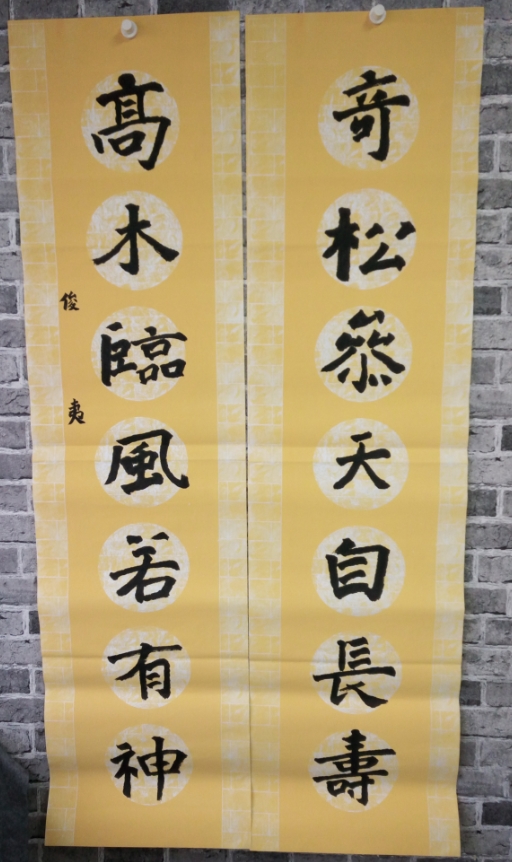 奇松叅天自長壽
高木臨風若有神
俊夷